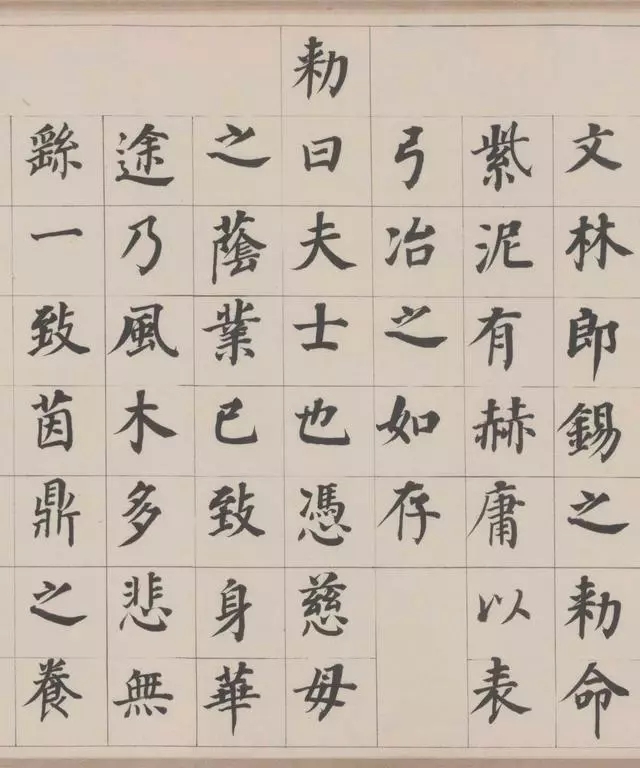 文林郎錫之勑命
紫泥有赫庸以表
弓冶之如存
勑曰夫士也憑慈母
之蔭業已致身華
途乃風木多悲無
繇一致茵鼎之養